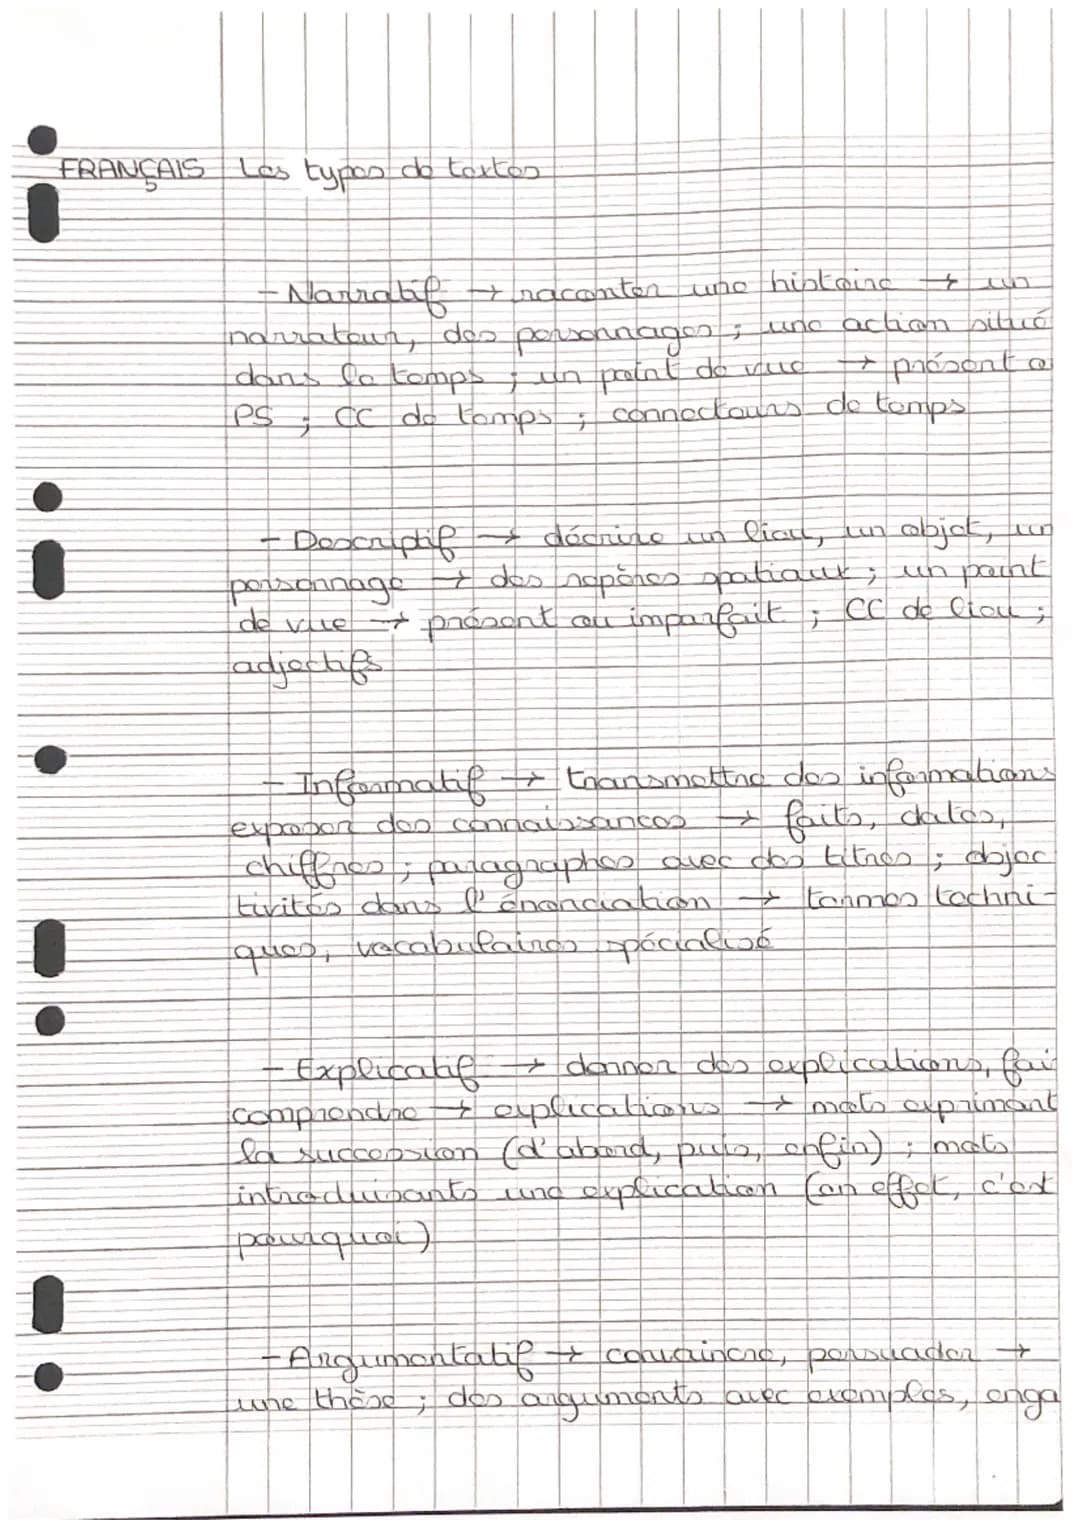 FRANÇAIS Les types de textes
- Narratif → raconter une histoire → un
narrateur, des personnages ; une action situé
dans le temps ; un point de vue → présent o
PS ; CC de temps ; connecteurs de temps
- Descriptif → décrire un lieu, un objet, un
personnage → des repères spatiaux ; un point
de vue → présent ou imparfait ; CC de lieu ;
adjectifs
- Informatif → transmettre des informations
exposer des connaissances → faits, dates,
chiffres ; paragraphes avec des titres ; objec
tivités dans l'énonciation → termes techni-
ques, vocabulaires spécialisé
- Explicatif → donner des explications, fai
comprendre → explications → mots exprimant
la succession (d'abord, puis, enfin) ; mots
introduisants une explication (en effet, c'est
pourquoi)
- Argumentatif → convaincre, persuader →
une thèse ; des arguments avec exemples, enga